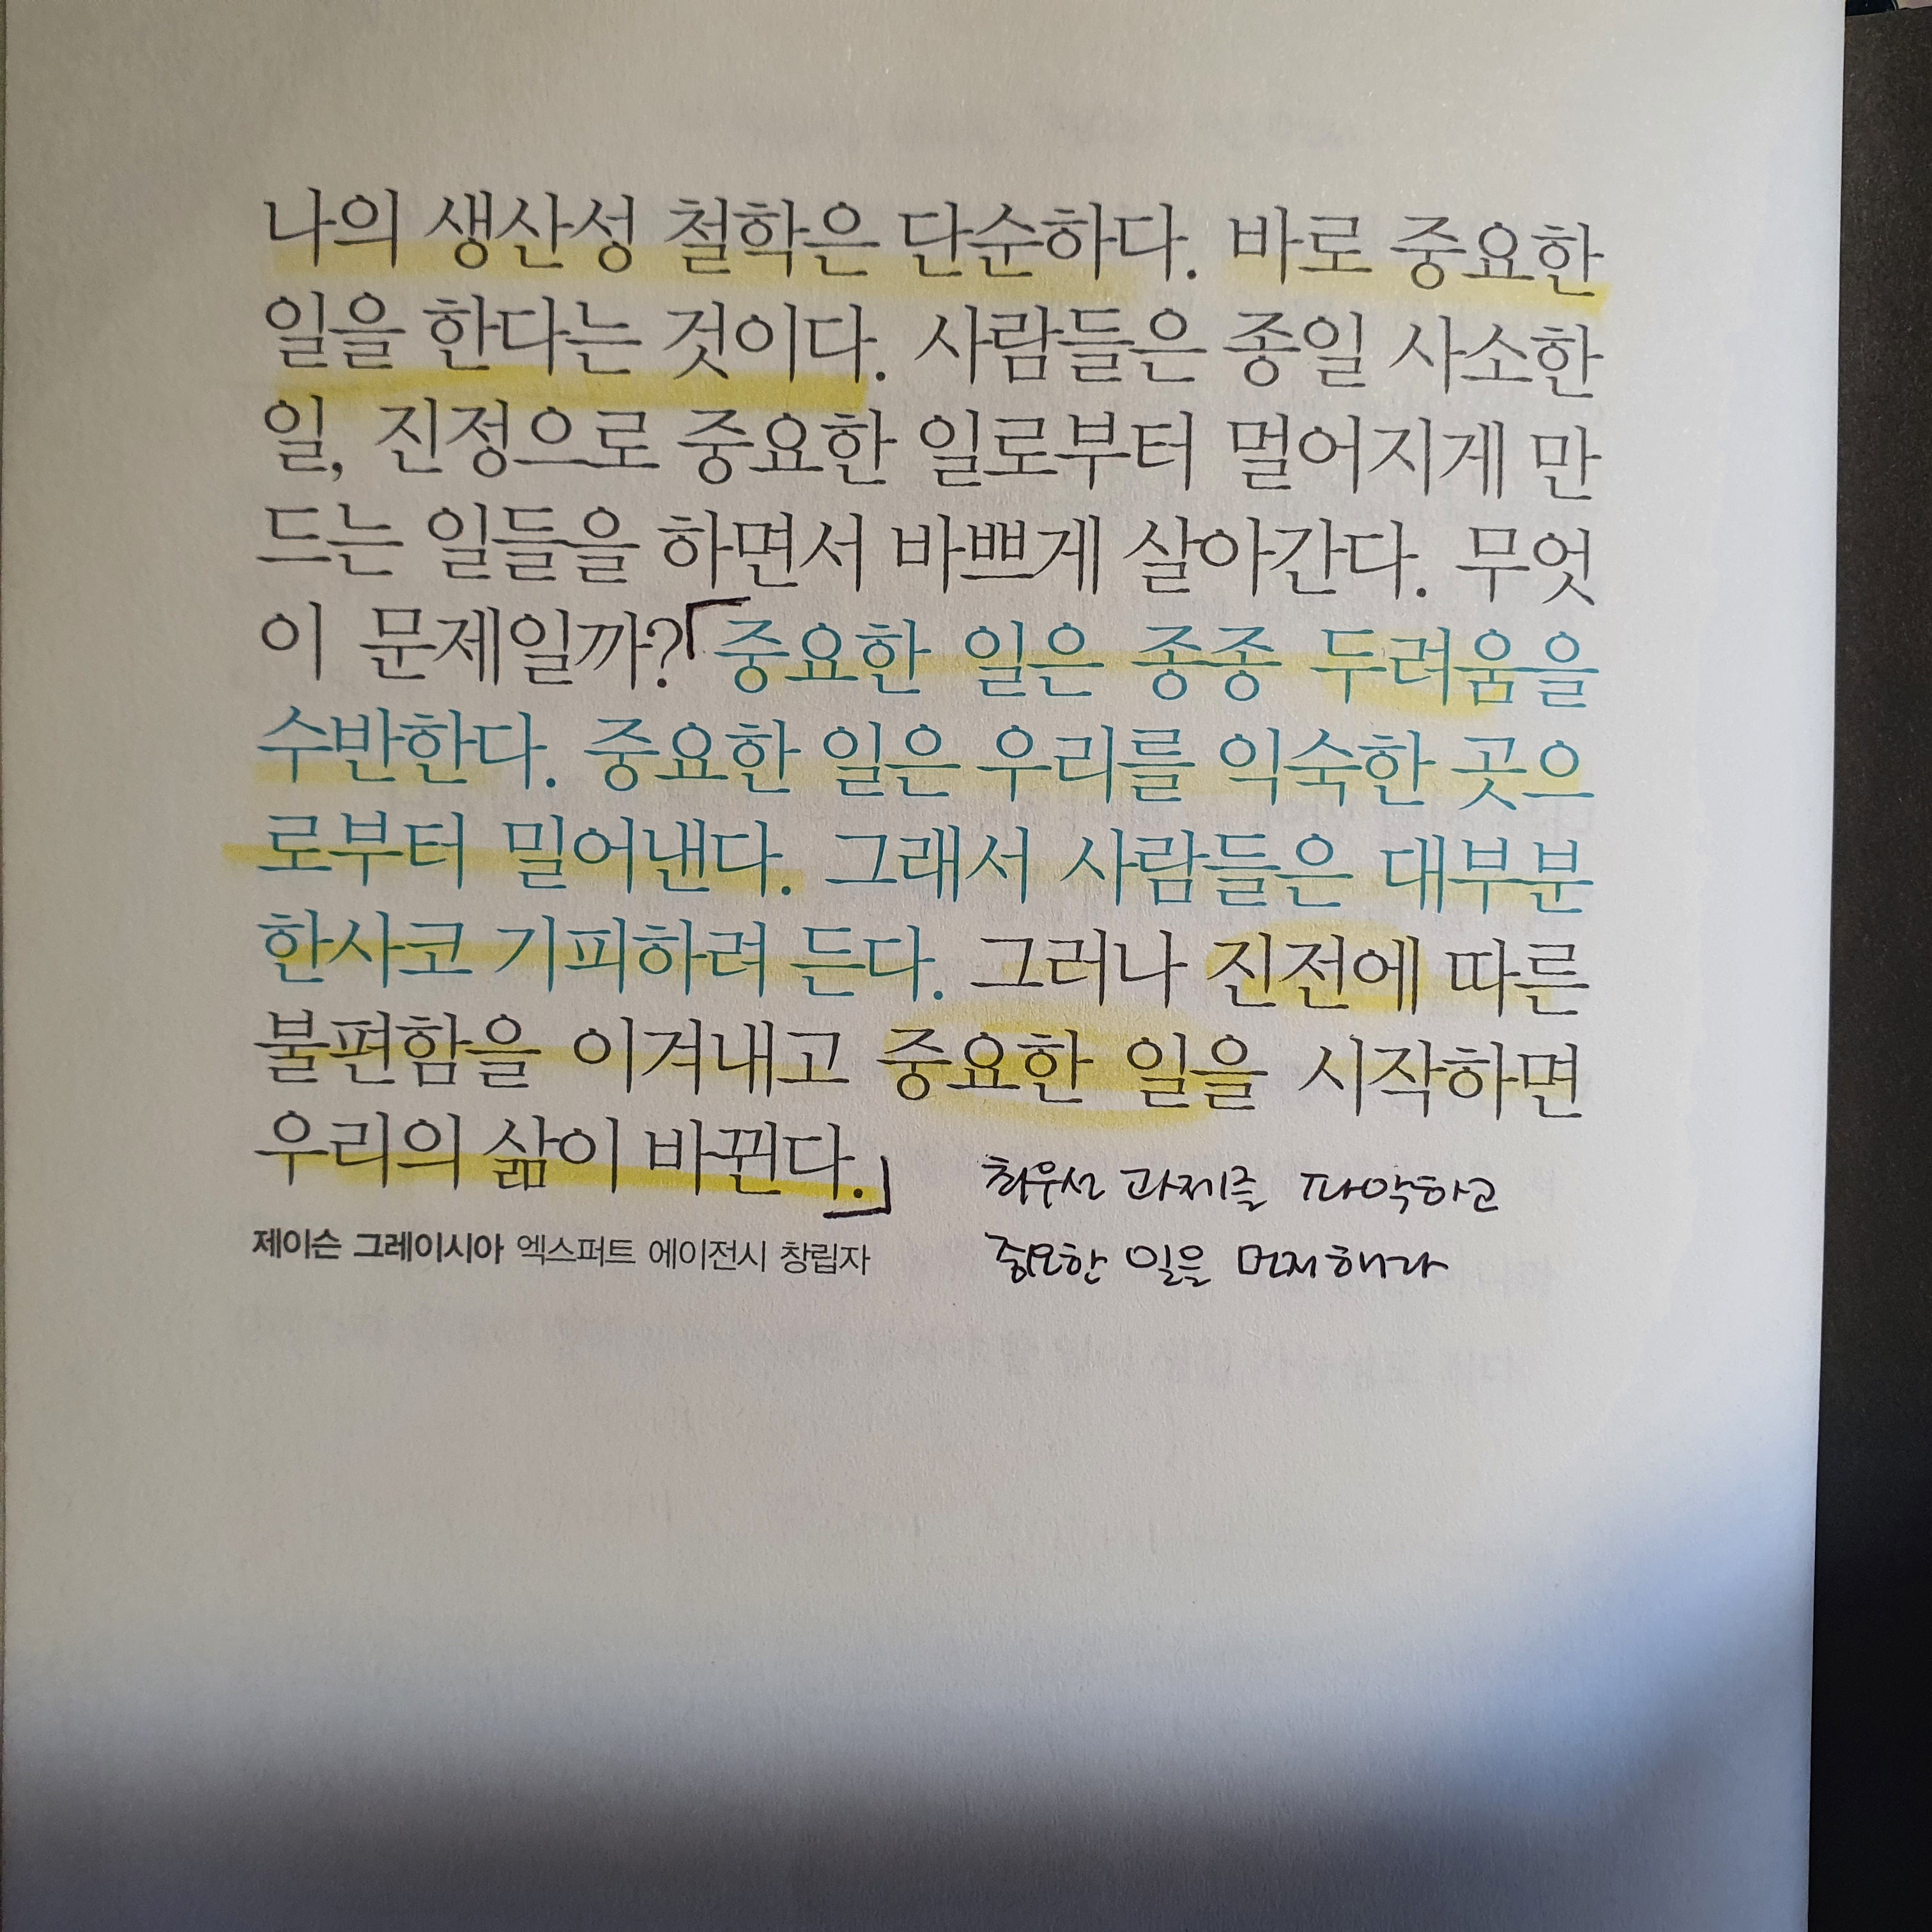 나의 생산성 철학은 단순하다. 바로 중요한
일을 한다는 것이다. 사람들은 종일 사소한
일, 진정으로 중요한 일로부터 멀어지게 만
드는 일들을 하면서 바쁘게 살아간다. 무엇
이 문제일까?「중요한 일은 종종 두려움을
수반한다. 중요한 일은 우리를 익숙한 곳으
로부터 밀어낸다. 그래서 사람들은 대부분
한사코 기피하려 든다. 그러나 진전에 따른
불편함을 이겨내고 중요한 일을 시작하면
우리의 삶이 바뀐다.」
최우선 과제를 파악하고
제이슨 그레이시아 엑스퍼트 에이전시 창립자
중요한 일을 먼저 해라